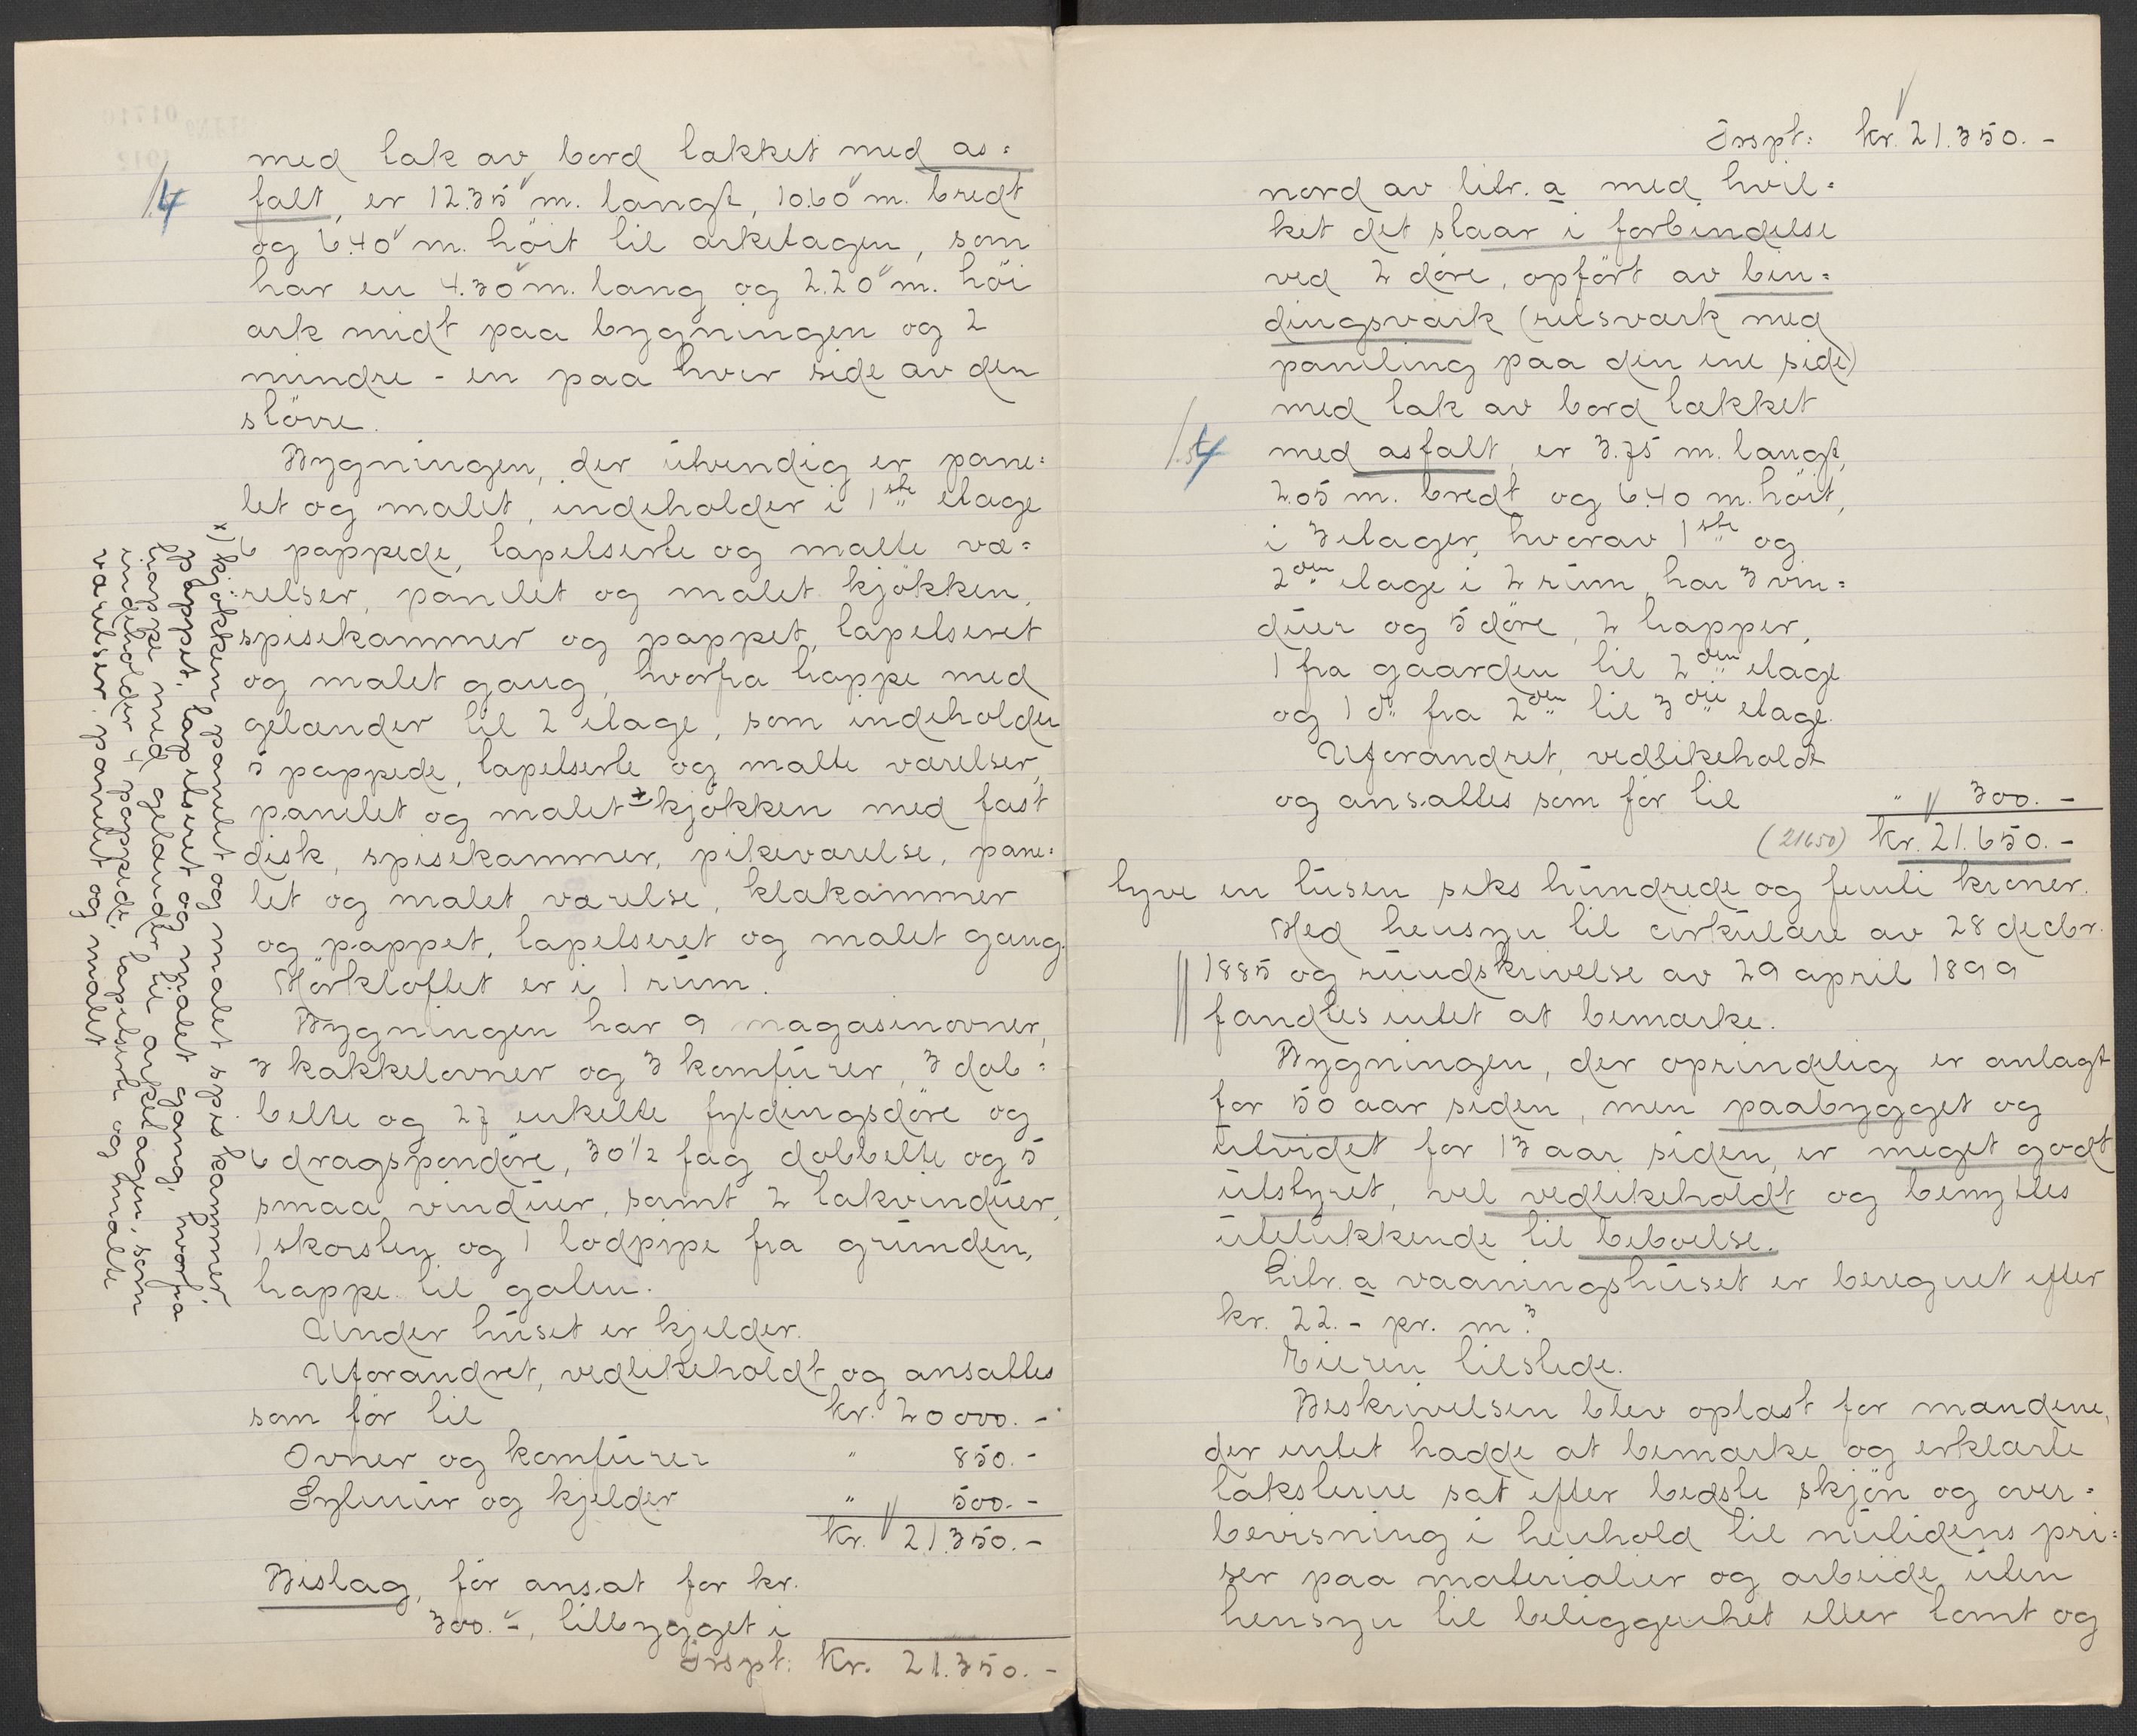 med tak av bord tækket med as=
falt, er 12.35 m. langt, 10.60 m. bredt
og 6.40 m. höit til arketagen, som
har en 4.30 m. lang og 2.20 m. höi
ark midt paa bygningen og 2
mindre - en paa hver side av den
större.
Bygningen, der utvendig er pane=
let og malet, indeholder i 1ste etage
6 pappede, tapetserte og malte væ=
relser, panelet og malet kjökken,
spisekammer og pappet, tapetseret
og malet gang, hvorfra trappe med
gelænder til 2 etage, som indeholder
5 pappede, tapetserte og malte værelser,
panelet og malet x kjökken med fast
disk, spisekammer, pikeværelse, pane=
let og malet værelse, klækammer
og pappet, tapetseret og malet gang.
Mörkloftet er i 1 rum.
Bygningen har 9 magasinovner,
3 kakkelovner og 3 komfurer, 3 dob=
belte og 27 enkelte fyldingsdöre og
6 dragspondöre, 30 1/2 fag dobbelte og 5
smaa vinduer, samt 2 takvinduer,
1 skorsten og 1 lodpipe fra grunden,
trappe til gaten.
Under huset er kjelder.
Uforandret, vedlikeholdt og ansattes
som för til kr. 20000.-
Ovner og komfurer " 850.-
Sylmur og kjelder " 500.-
kr. 21.350.-
Bislag, för ansat for kr.
300.-, tilbygget i
Trspt: Kr. 21.350.-
x) kjökken, panelet og malet spiskammer,
pappet, tapetseret og malet gang, hvorfra
trappe med gelænder til arketagen, som
indeholder 4 pappede, tapetserte og malte
værelser, panelet og malet
1.4
Trspt: kr. 21.350.-
nord av litr. a med hvil=
ket det staar i forbindelse
ved 2 döre, opfört av bin=
dingsværk (reisværk med
paneling paa den ene side)
med tak av bord tækket
med asfalt, er 3.75 m. langt,
2.05 m. bredt og 6.40 m. höit,
i 3 etager, hvorav 1ste og
2den etage i 2 rum, har 3 vin=
duer og 5 döre, 2 trapper,
1 fra gaarden til 2den etage
og 1 do fra 2den til 3die etage.
Uforandret, vedlikeholdt
og ansattes som för til " 300.-
(21650) kr. 21.650.-
tyve en tusen seks hundrede og femti kroner.
Med hensyn til cirkulære av 28 decbr.
1885 og rundskrivelse av 29 april 1899
fandtes intet at bemærke.
Bygningen, der oprindelig er anlagt
for 50 aar siden, men paabygget og
utvidet for 13 aar siden, er meget godt
utstyret, vel vedlikeholdt og benyttes
utelukkende til beboelse.
Litr. a vaaningshuset er beregnet efter
kr. 22.- pr. m3.
Eieren tilstede.
Beskrivelsen blev oplæst for mændene,
der intet hadde at bemærke og erklærte
taksterne sat efter bedste skjön og over=
bevisning i henhold til nutidens pri=
ser paa materialier og arbeide uten
hensyn til beliggenhet eller tomt og